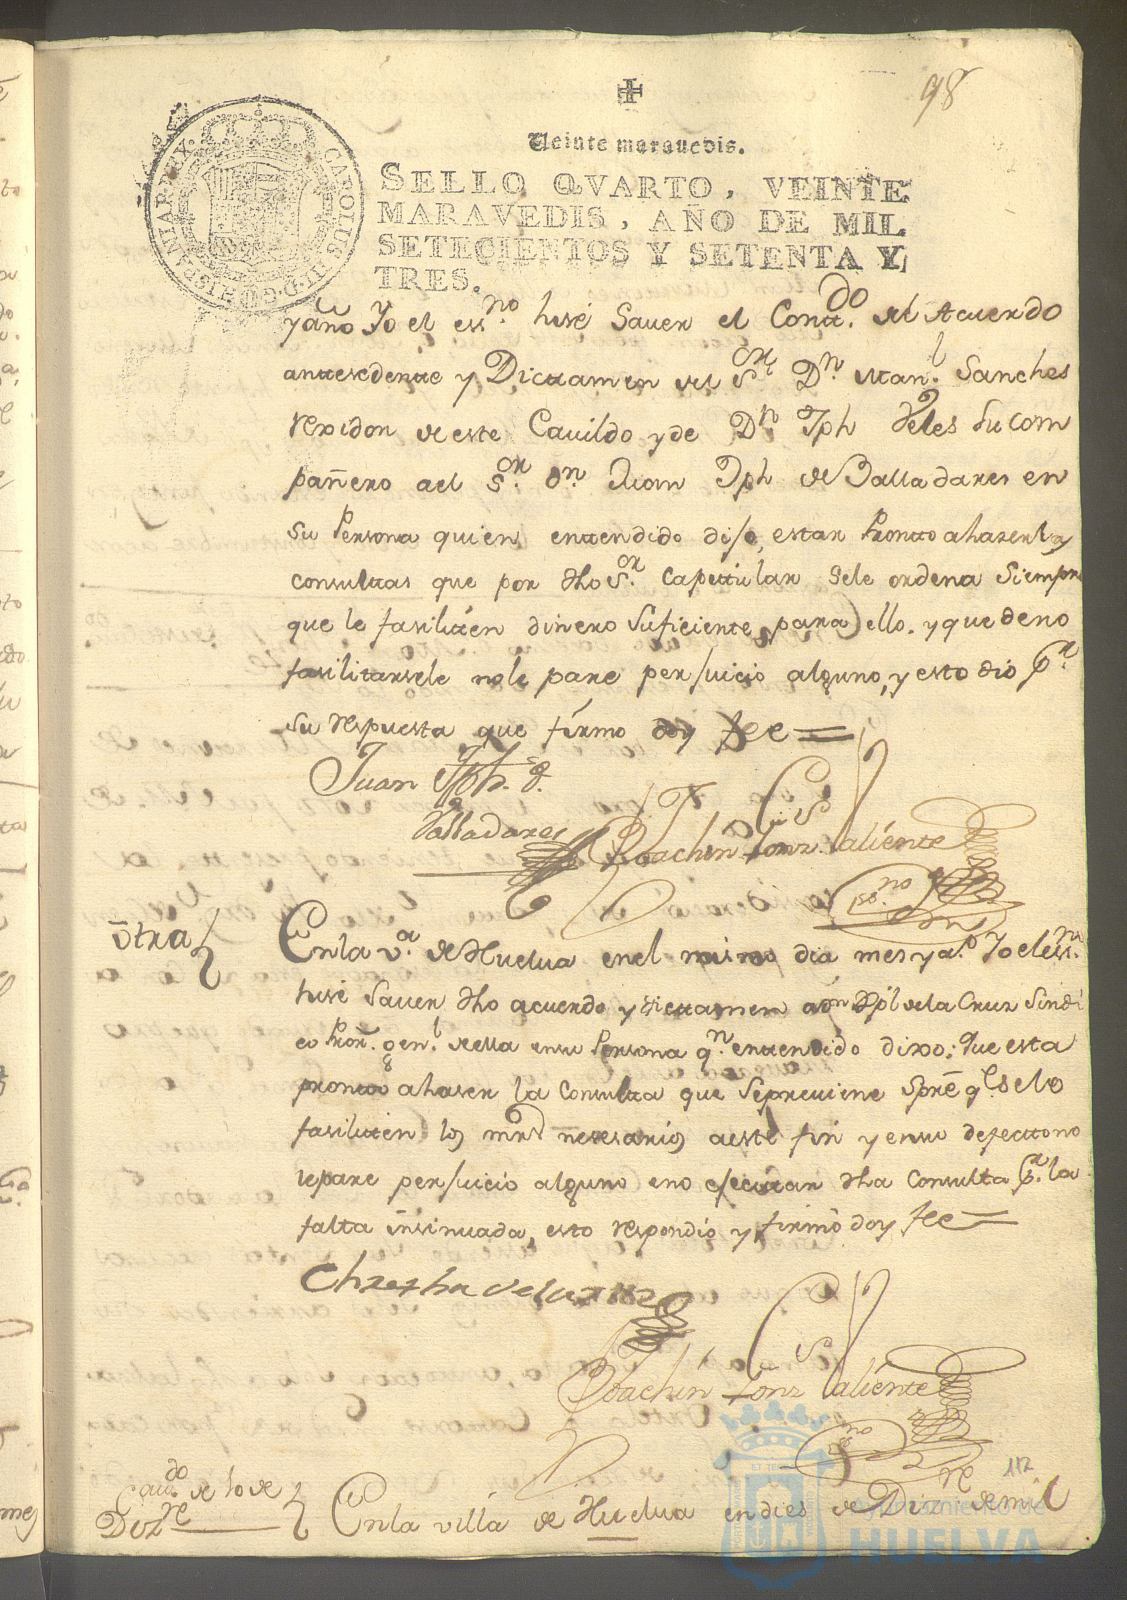 98
Veinte marauedis.
SELLO QVARTO, VEINTE
MARAVEDIS, AÑO DE MIL
SETECIENTOS Y SETENTA Y
TRES.
CAROLUS III D.G. HISPANIAR REX.
y año Yo el essno hisé Saver el Contdo. del Acuerdo
antesedente y Dictamen del Sor. Dn. Manl. Sanches
rexidor de este Cavildo y de Dn. Jph Veles su com
pañero ael Sor. dn. Juan Jph de Balladares en
su Persona quien entendido dijo, estar Prontto ahazer las
consultas que por dho Sor. Capitular sele ordena Siempre
que le fasilitén dinero suficiente para ello. y que de no
fasilitarsele nole pare perjuicio alguno, y esto dió pr.
su respuesta que firmo doy fee =
Juan Jph. d.
Valladares
Joachin Gonz Valiente
esno
Otra
En la Va. de Huelva en el mismo dia mes y ao. Yo el essno.
hisé Saver dho acuerdo y dictamen a dn Xptl de la Cruz Sindi
co Pror. genl. de ella en su Persona qn. entendido dixo: Que esta
pronto ahaser la Consulta que se previene spre. q. se le
fasilitén los mrs necesarios a este fin y en su defectto no
le pare perjuicio alguno en o ejecutar dha Consulta pr. la
falta insinuada, esto respondió y firmó doy fee =
Joachin Gonz Valiente
esno
112
Cavdo. de 10 de
Dizre
En la villa de Huelva en dies de Dizre de mil
Ayuntamiento de
HUELVA